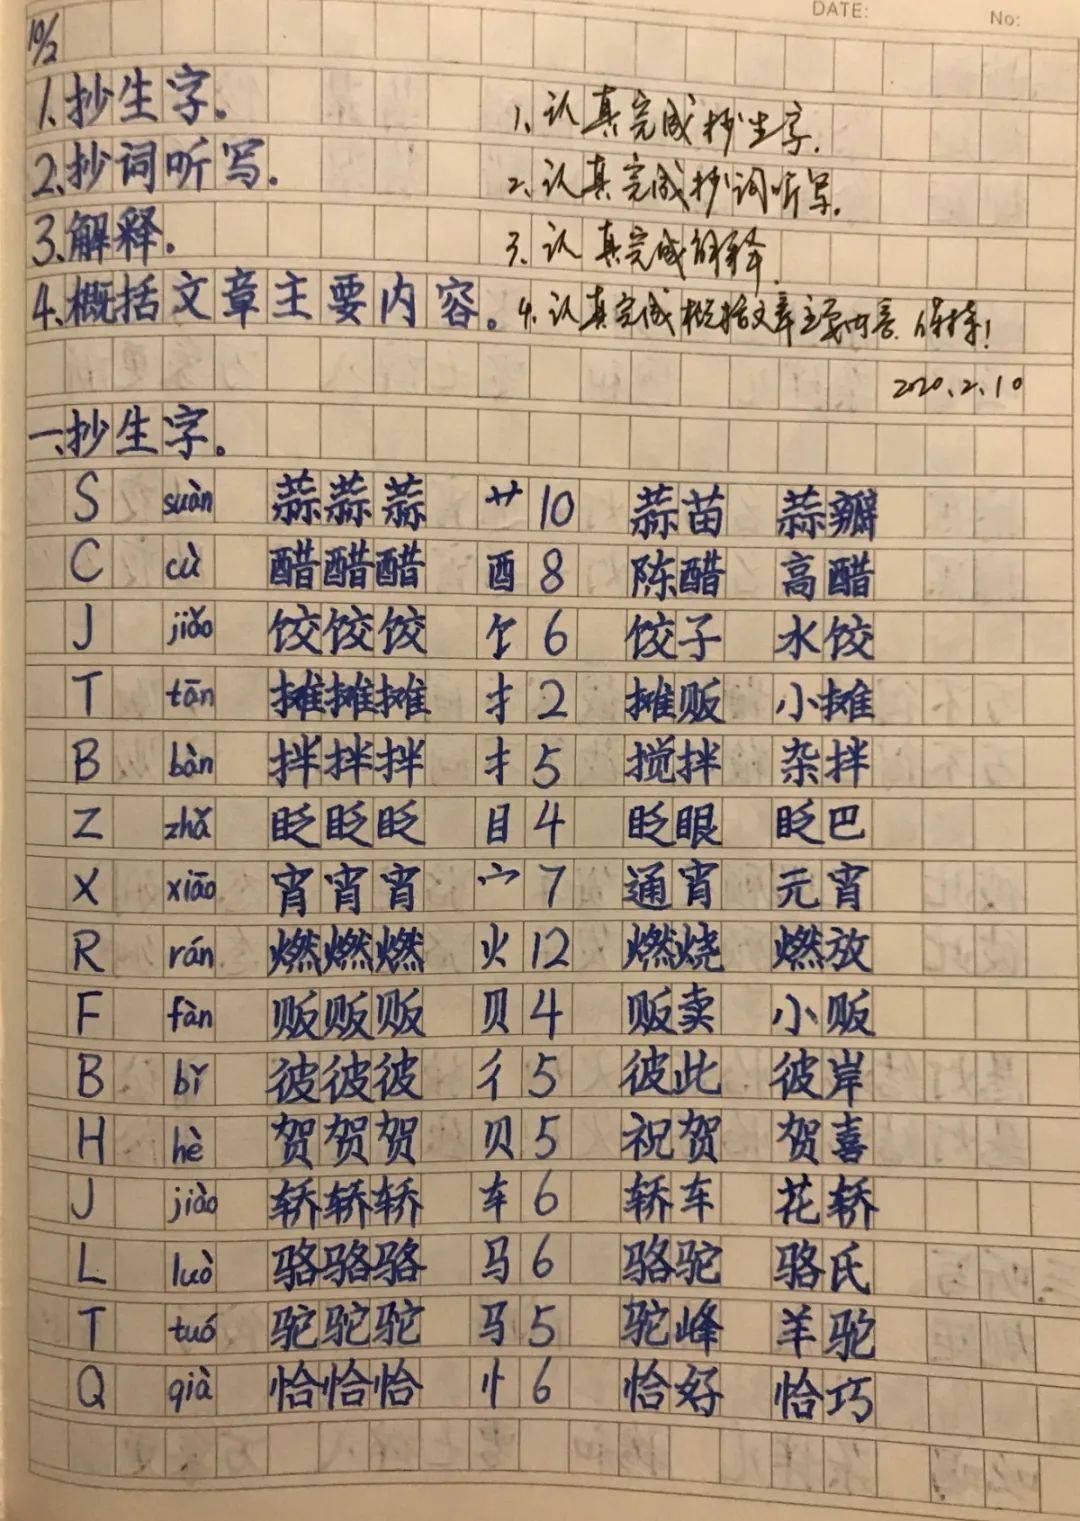 DATE: No:
10/2
1、抄生字。 1、认真完成抄生字.
2、抄词听写。 2、认真完成抄词听写.
3、解释。 3、认真完成解释.
4、概括文章主要内容。 4、认真完成概括文章主要内容. 保持!
2020.2.10
一、抄生字。
S suàn 蒜蒜蒜 艹10 蒜苗 蒜瓣
C cù 醋醋醋 酉8 陈醋 高醋
J jiǎo 饺饺饺 饣6 饺子 水饺
T tān 摊摊摊 扌2 摊贩 小摊
B bàn 拌拌拌 扌5 搅拌 杂拌
Z zhǎ 眨眨眨 目4 眨眼 眨巴
X xiāo 宵宵宵 宀7 通宵 元宵
R rán 燃燃燃 火12 燃烧 燃放
F fàn 贩贩贩 贝4 贩卖 小贩
B bǐ 彼彼彼 彳5 彼此 彼岸
H hè 贺贺贺 贝5 祝贺 贺喜
J jiào 轿轿轿 车6 轿车 花轿
L luò 骆骆骆 马6 骆驼 骆氏
T tuó 驼驼驼 马5 驼峰 羊驼
Q qià 恰恰恰 忄6 恰好 恰巧